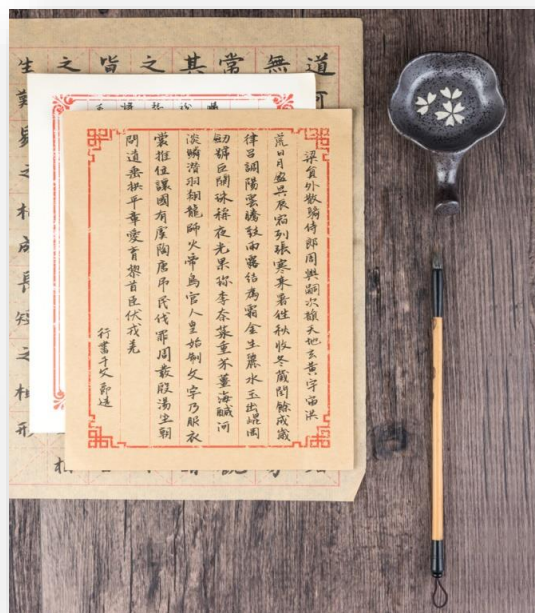 道可
無
常
其
之
皆
之
生難易之相成長短之相形
梁員外散騎侍郎周興嗣次韻天地玄黃宇宙洪
荒日月盈昃辰宿列張寒来暑往秋收冬藏閏餘成歲
律呂調陽雲騰致雨露結為霜金生麗水玉出崐岡
劒號巨闕珠稱夜光果珍李柰菜重芥薑海醎河
淡鱗潛羽翔龍師火帝鳥官人皇始制文字乃服衣
裳推位讓國有虞陶唐吊民伐罪周發殷湯坐朝
問道垂拱平章愛育黎首臣伏戎羌
行書千文節選